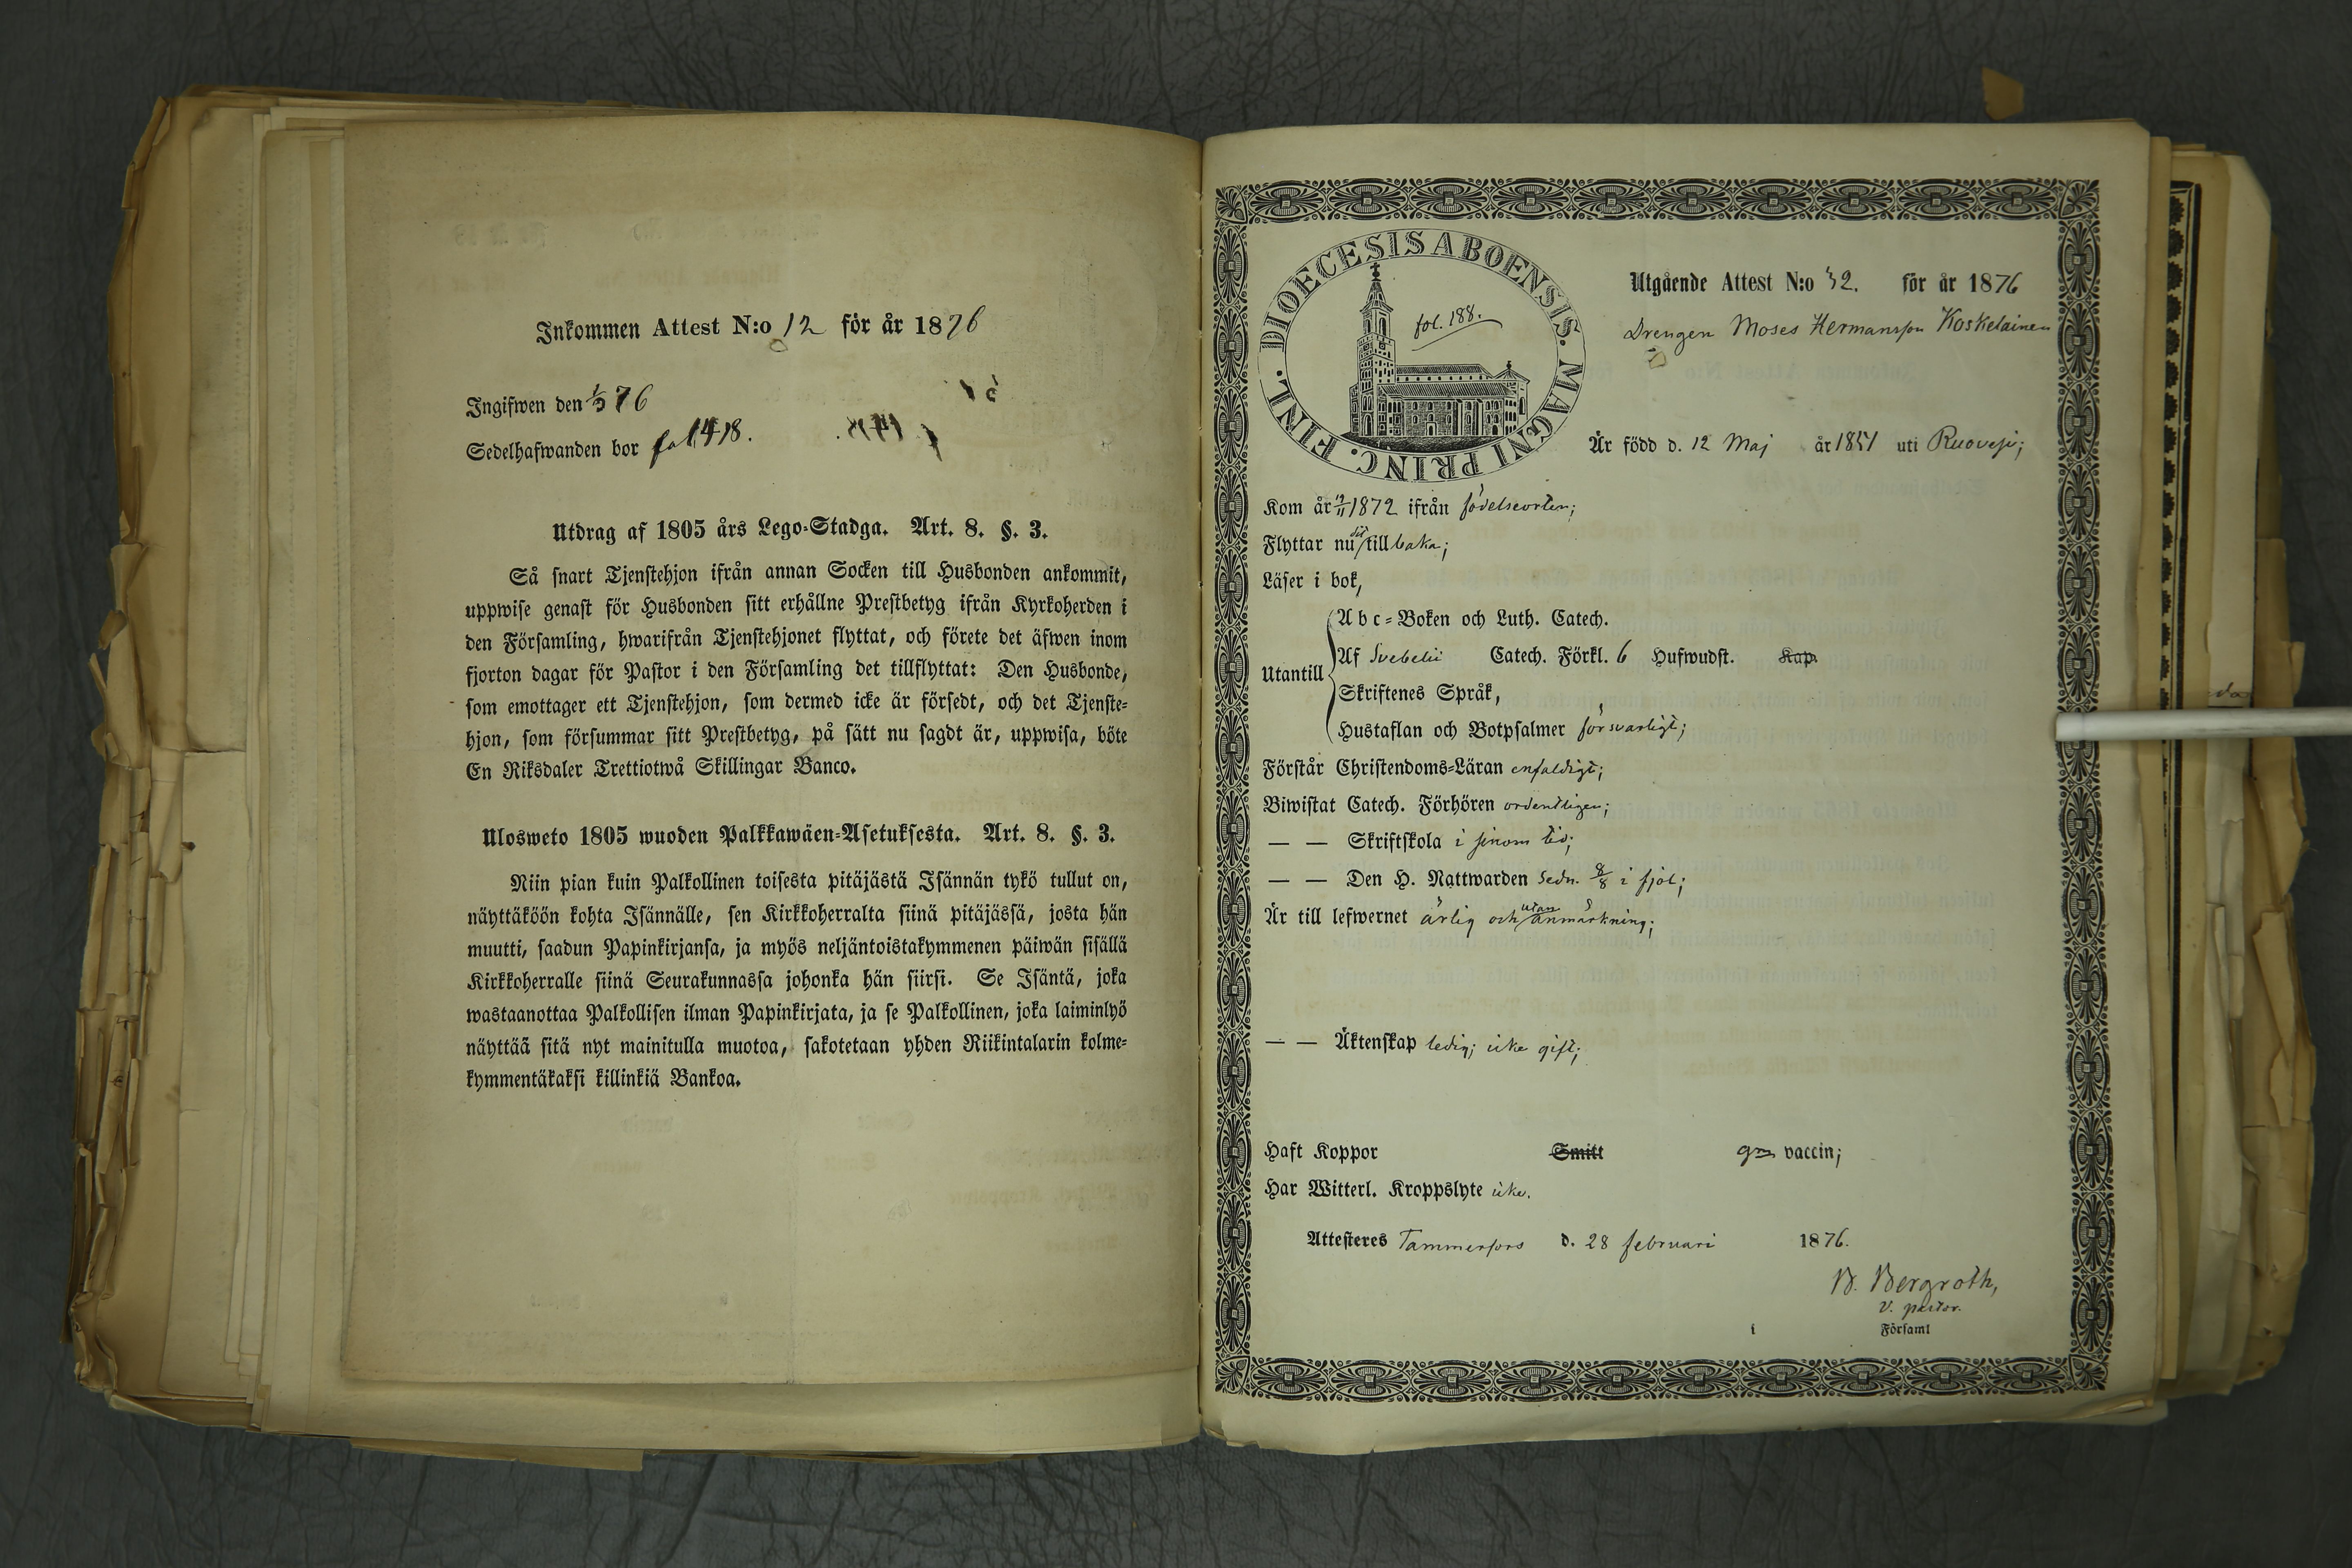 Inkommen Attest N:o 12 för år 1876
Ingifwen den 1/3 76
Sedelhafwanden bor fol 1418.
Utdrag af 1805 års Lego-Stadga. Art. 8. §. 3.
Så snart Tjenstehjon ifrån annan Socken till Husbonden ankommit,
uppwise genast för Husbonden sitt erhållne Prestbetyg ifrån Kyrkoherden i
den Församling, hwarifrån Tjenstehjonet flyttat, och förete det äfwen inom
fjorton dagar för Pastor i den Församling det tillflyttat: Den Husbonde,
som emottager ett Tjenstehjon, som dermed icke är försedt, och det Tjenste-
hjon, som försummar sitt Prestbetyg, på sätt nu sagdt är, uppwisa, böte
En Riksdaler Trettiotwå Skillingar Banco.
Ulosweto 1805 wuoden Palkkawäen-Asetuksesta. Art. 8. §. 3.
Niin pian kuin Palkollinen toisesta pitäjästä Isännän tykö tullut on,
näyttäköön kohta Isännälle, sen Kirkkoherralta siinä pitäjässä, josta hän
muutti, saadun Papinkirjansa, ja myös neljäntoistakymmenen päiwän sisällä
Kirkkoherralle siinä Seurakunnassa johonka hän siirsi. Se Isäntä, joka
wastaanottaa Palkollisen ilman Papinkirjata, ja se Palkollinen, joka laiminlyö
näyttää sitä nyt mainitulla muotoa, sakotetaan yhden Riikintalarin kolme-
kymmentäkaksi killinkiä Bankoa.
DIOECESIS ABOENSIS. MAGNI PRINC. FINL.
fol. 188.
Utgående Attest N:o 32. för år 1876
Drengen Moses Hermansson Koskelainen
Är född d. 12 Maj år 1851 uti Ruovesi;
Kom år 1872 ifrån födelseorten;
Flyttar nu dit tillbaka;
Läser i bok,
Utantill
Abc-Boken och Luth. Catech.
Af Svebelii Catech. Förkl. 6 Hufwudst. Kap.
Skriftenes Språk,
Hustaflan och Botpsalmer försvarligt;
Förstår Christendoms-Läran enfaldigt;
Biwistat Catech. Förhören ordentligen;
— — Skriftskola i sinom tid;
— — Den H. Nattwarden sedn. 8/8 i fjol;
Är till lefwernet ärlig och utan anmärkning;
— — Äktenskap ledig; icke gift;
Haft Koppor Smitt gm vaccin;
Har Witterl. Kroppslyte icke.
Attesteres Tammerfors d. 28 februari 1876.
B. Bergroth,
v. pastor.
i Församl